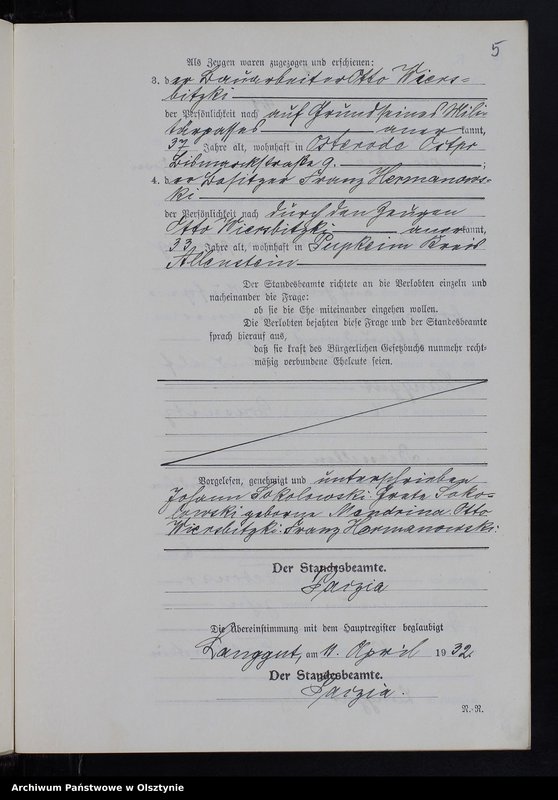 5
Als Zeugen waren zugezogen und erschienen:
3. der Bauarbeiter Otto Wiers=
bitzki
der Persönlichkeit nach auf Grund seines Mili-
tärpasses anerkannt,
37 Jahre alt, wohnhaft in Osterode Ostpr
Bismarckstraße 9. ;
4. der Besitzer Franz Hermanows-
ki
der Persönlichkeit nach durch den Zeugen
Otto Wiersbitzki anerkannt,
33 Jahre alt, wohnhaft in Pupkeim Kreis
Allenstein
Der Standesbeamte richtete an die Verlobten einzeln und
nacheinander die Frage:
ob sie die Ehe miteinander eingehen wollen.
Die Verlobten bejahten diese Frage und der Standesbeamte
sprach hierauf aus,
daß sie kraft des Bürgerlichen Gesetzbuchs nunmehr recht-
mäßig verbundene Eheleute seien.
Vorgelesen, genehmigt und unterschrieben
Johann Sokolowski. Grete Soko-
lowski geborene Mandrina. Otto
Wiersbitzki. Franz Hermanowski.
Der Standesbeamte.
Die Übereinstimmung mit dem Hauptregister beglaubigt
Langgut, am 11. April 1932.
Der Standesbeamte.
N.-R.
Archiwum Państwowe w Olsztynie